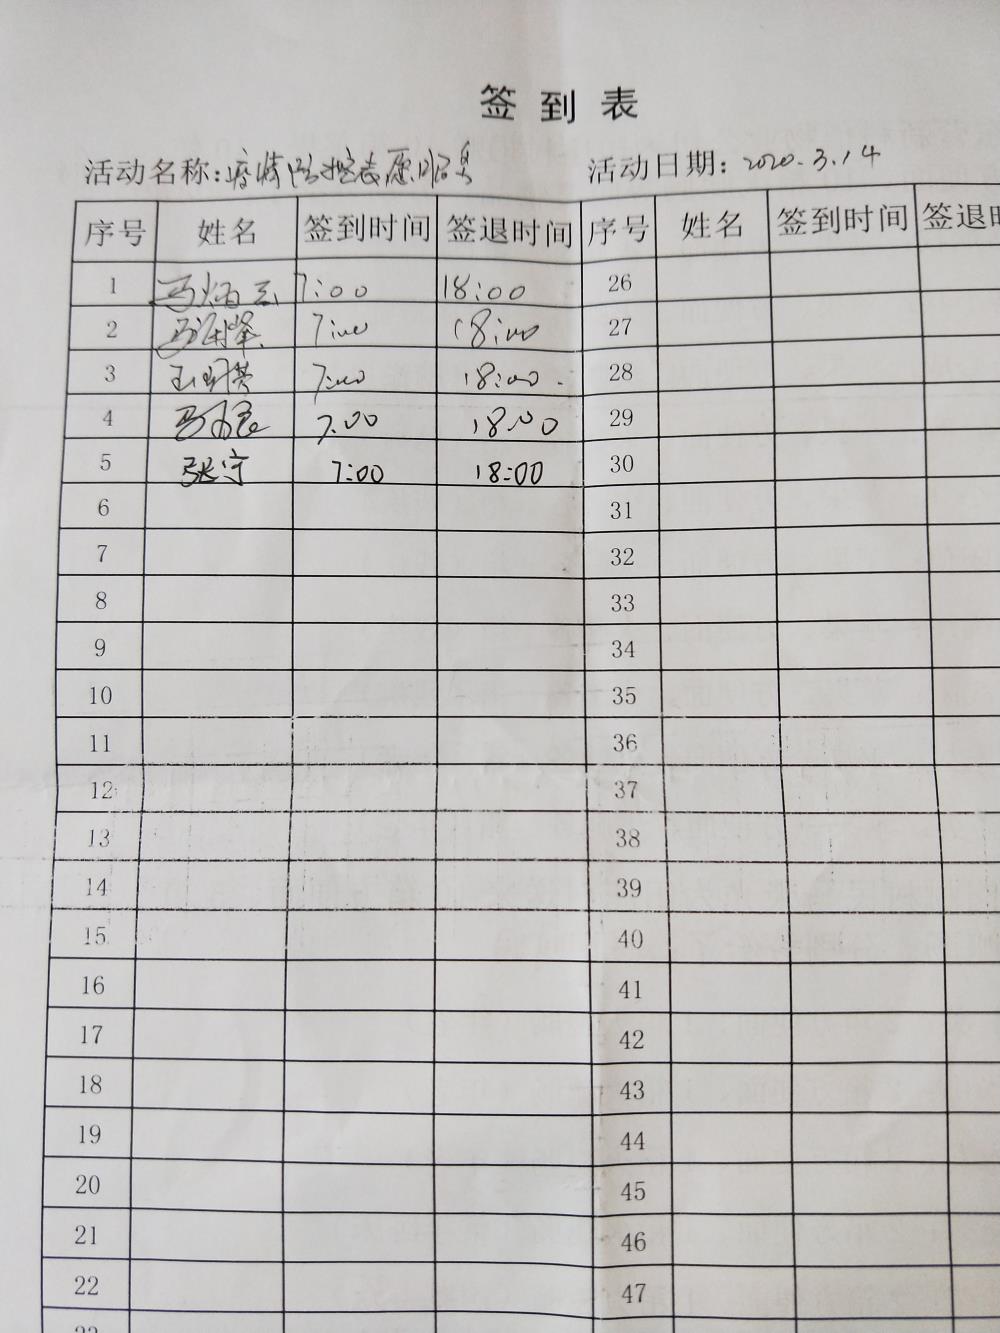 签到表
活动名称:疫情防控志愿服务 活动日期:2020.3.14
序号 姓名 签到时间 签退时间 序号 姓名 签到时间 签退时
1 马炳云 7:00 18:00 26
2 7:00 18:00 27
3 7:00 18:00 28
4 7:00 18:00 29
5 张宁 7:00 18:00 30
6 31
7 32
8 33
9 34
10 35
11 36
12 37
13 38
14 39
15 40
16 41
17 42
18 43
19 44
20 45
21 46
22 47